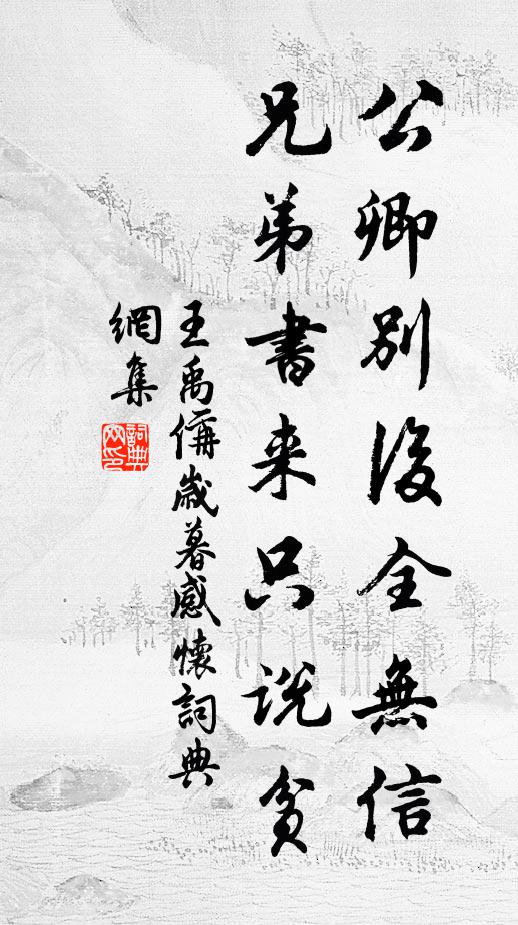 公卿別後全無信
兄弟書来只説貧
王禹偁歲暮感懷詞典
網集
詞典
网印